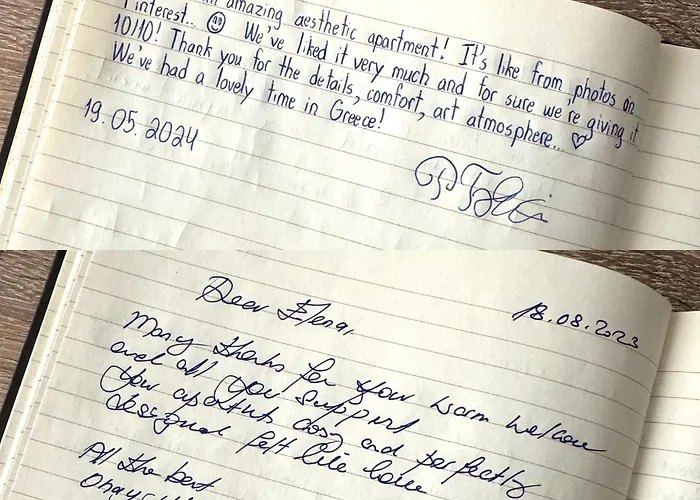 amazing aesthetic apartment! It's like from photos on
Pinterest.. We've liked it very much and for sure we're giving it
10/10! Thank you for the details, comfort, art atmosphere...
We've had a lovely time in Greece!
19.05.2024
Dear Elena,
18.08.2023
Many thanks for your warm welcome
and all your support
your and perfectly
designed felt like home
All the best